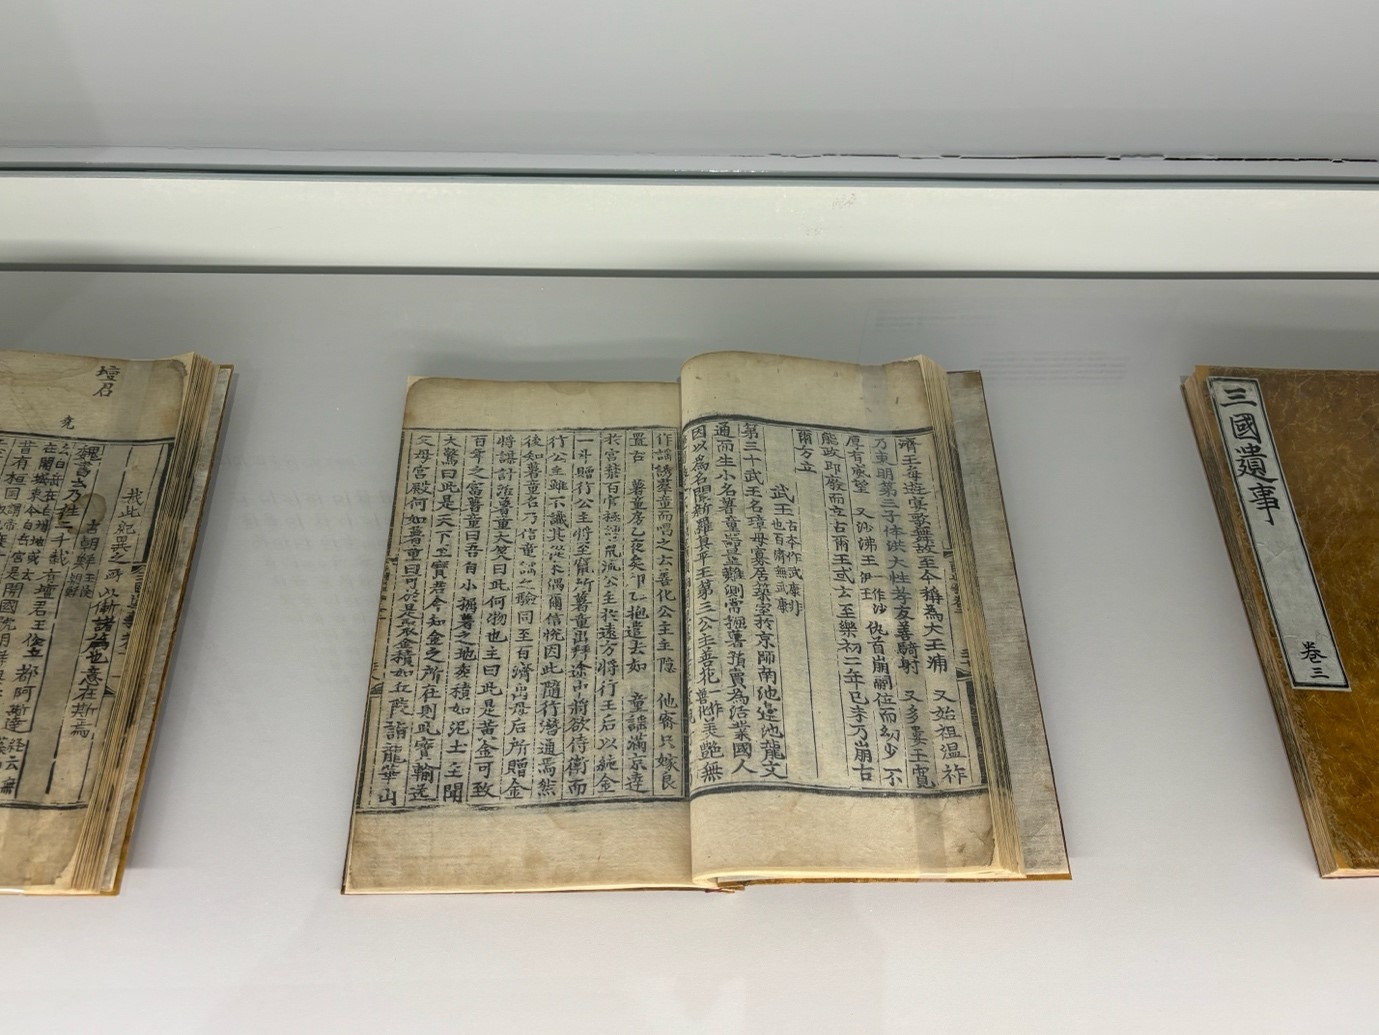 三國遺事
卷三
濟王每遊宴歌舞故至今稱為大王浦 又始祖溫祚
乃東明第三子体洪大性孝友善騎射 又多婁王寬
厚有威望 又沙沸王 一作沙伊王 仇首崩嗣位而幼少不
能政即廢而立古爾王或云至樂初二年己未乃崩古
爾方立
武王 古本作武康非也百濟無武康
第三十武王名璋母寡居築室於京師南池邊池龍文
通而生小名薯童器量難測常掘薯蕷賣為活業國人
因以爲名聞新羅眞平王第三公主善花一作善化美艶無
作謠誘羣童而唱之云善化公主主隱 他密只嫁良
置古 薯童房乙夜矣卯乙抱遣去如 童謠滿京達
於宮禁百官極諫竄流公主於遠方將行王后以純金
一斗贈行公主將至竄所薯童出拜途中將欲侍衛而
行公主雖不識其從來偶爾信悅因此隨行潛通焉然
後知薯童名乃信童謠之驗同至百濟出母后所贈金
將謀計活薯童大笑曰此何物也主曰此是黃金可致
百年之富薯童曰吾自小掘薯之地委積如泥土主聞
大驚曰此是天下至寶君今知金之所在則此寶輸送
父母宮殿何如薯童曰可於是聚金積如丘陵詣龍華山
我此紀異之所以漸諸篇也意在斯焉
古朝鮮 王儉朝鮮
魏書云乃往二千載有壇君王儉立都阿斯達 經云無